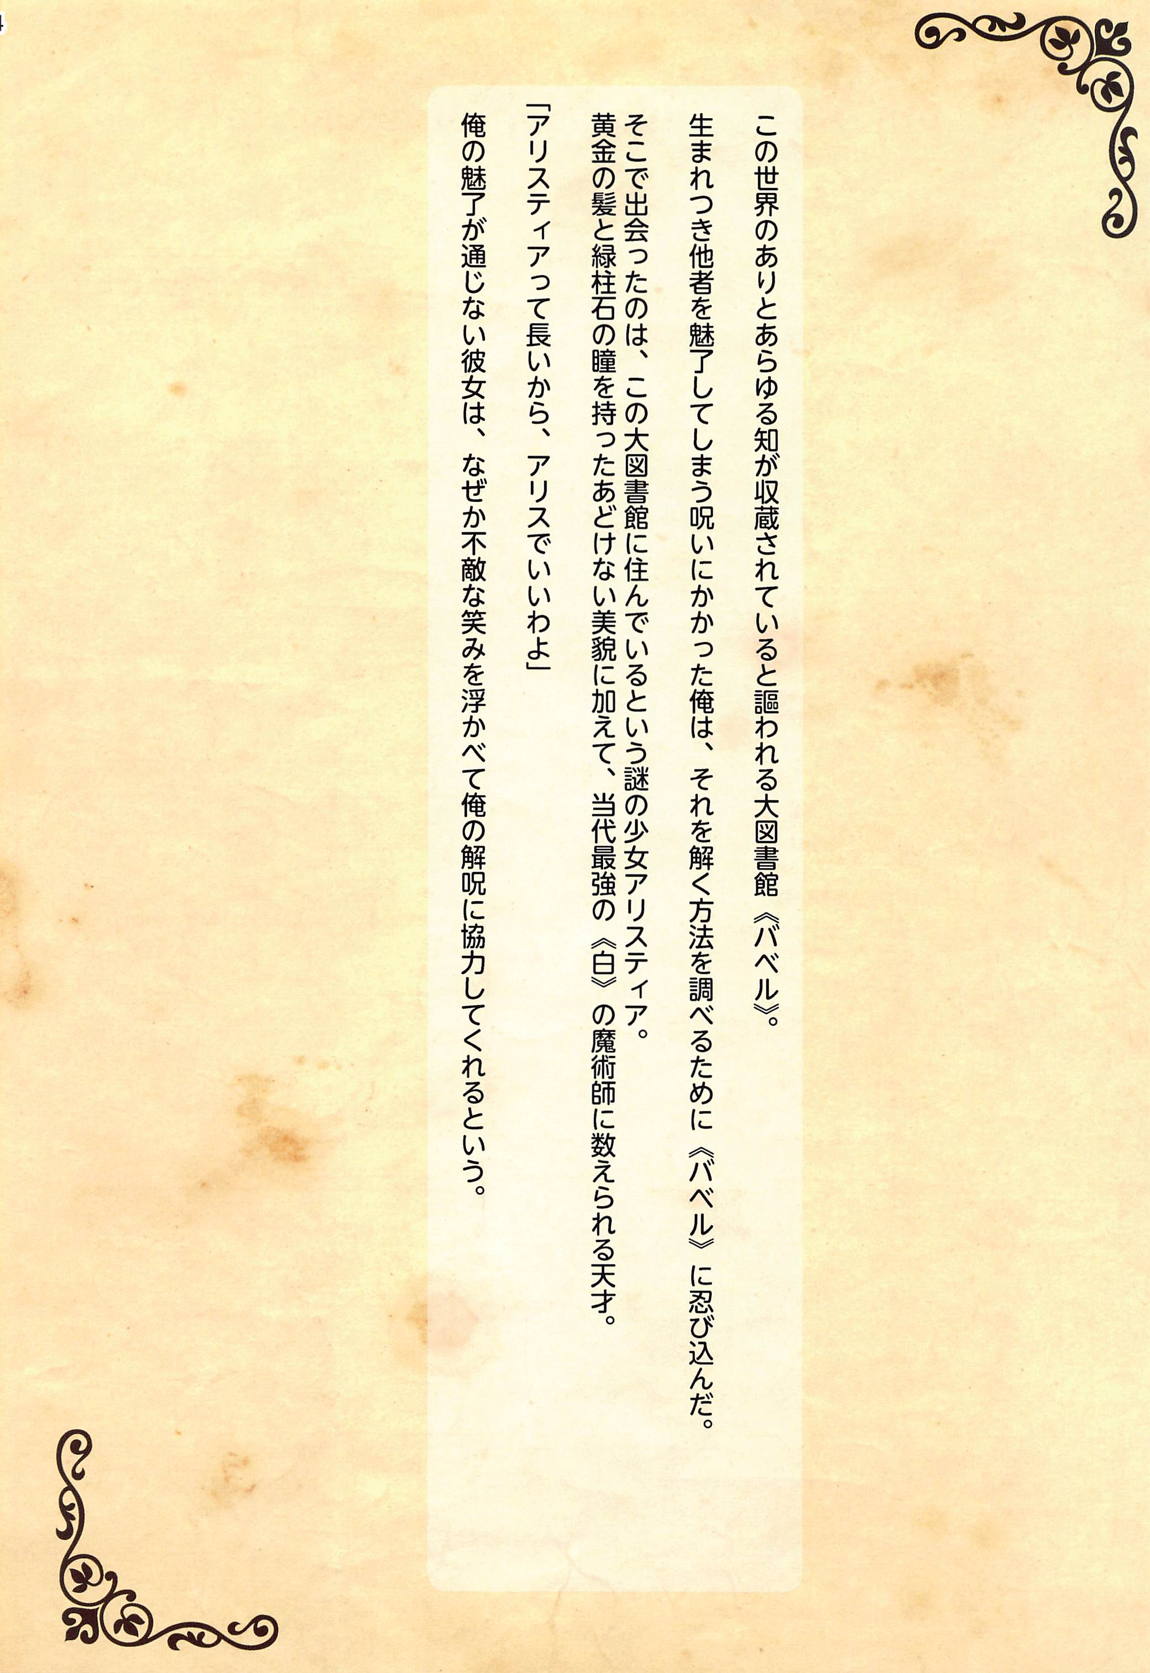 この世界のありとあらゆる知が収蔵されていると謳われる大図書館《バベル》。
生まれつき他者を魅了してしまう呪いにかかった俺は、それを解く方法を調べるために《バベル》に忍び込んだ。
そこで出会ったのは、この大図書館に住んでいるという謎の少女アリスティア。
黄金の髪と緑柱石の瞳を持ったあどけない美貌に加えて、当代最強の《白》の魔術師に数えられる天才。
「アリスティアって長いから、アリスでいいわよ」
俺の魅了が通じない彼女は、なぜか不敵な笑みを浮かべて俺の解呪に協力してくれるという。